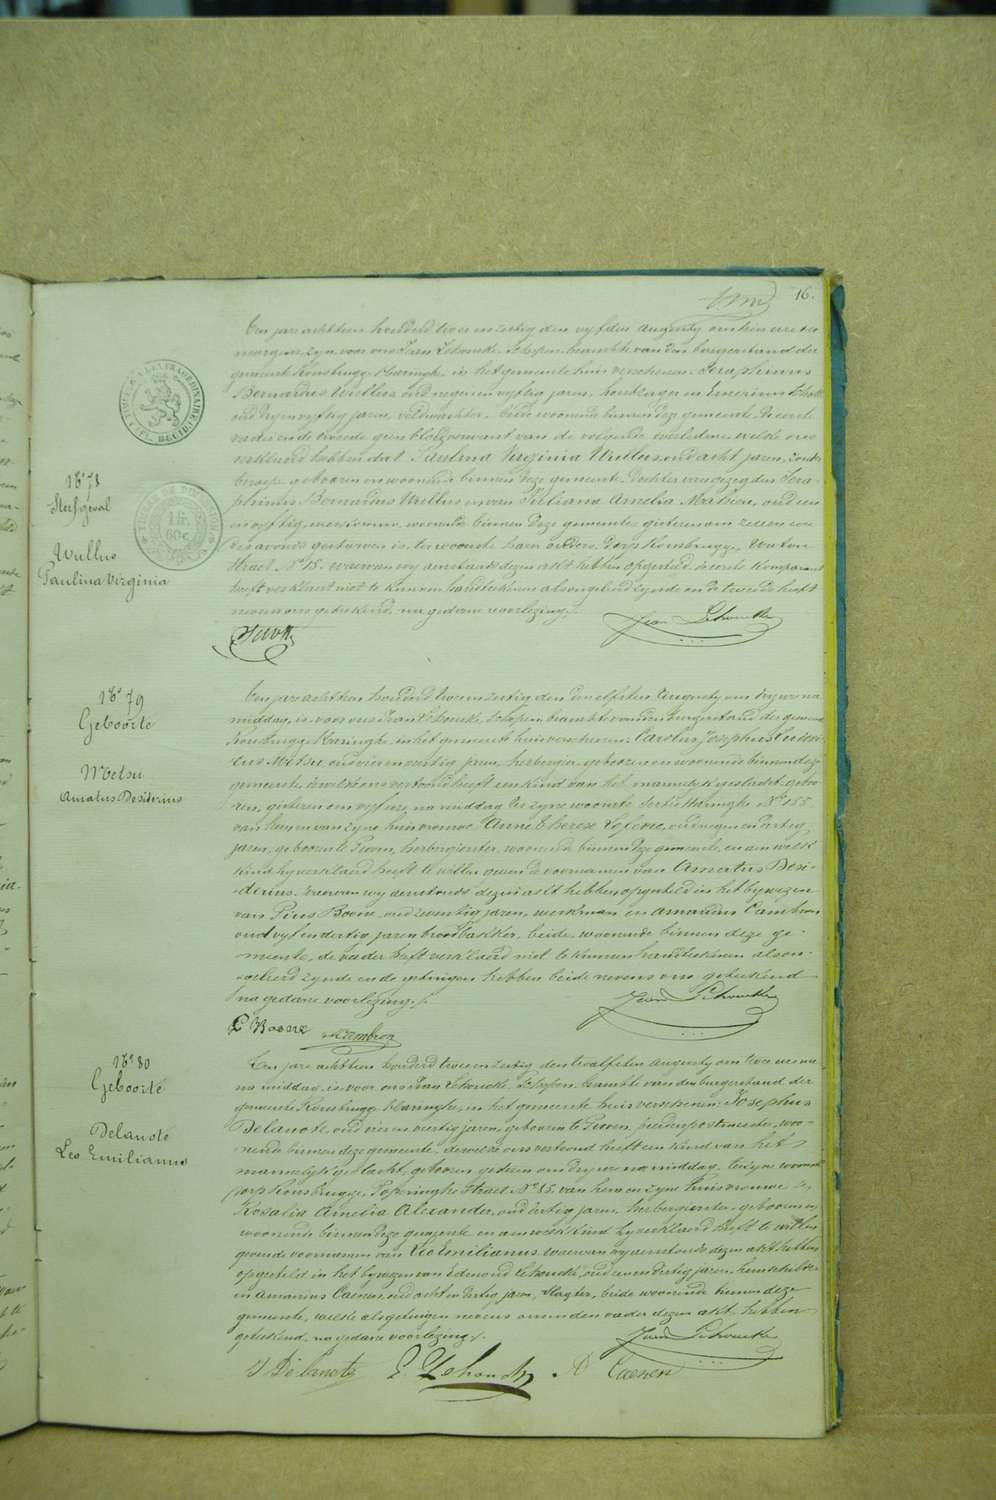 16.
Een jare achttien honderd twee en zestig den vyfden Augusty om tien ure voor
morgen, zyn voor ons Jean Lehoucke Schepen beambte van den burgerstand der
gemeente Rousbrugge Haringhe in het gemeente huis verschenen, Seraphinus
Bernardus Wullus oud negen en vyftig jaren, houtzager en
oud dry en vyftig jaren, veldwachter, beide woonende binnen deze gemeente. De eerste
vader en de tweede geen bloedverwant van de volgende overledene welke ons
verklaard hebben dat Paulina Virginia Wullus, oud acht jaren, zonder
beroep, geboren en woonende binnen deze gemeente, Dochter van gezegden Sera-
phinus Bernardus Wullus en van Juliana Amelia Mahieu, oud een
en vyftig, werkvrouw, woonende binnen deze gemeente, gisteren om zeven ure
des avonds gestorven is, ter woonste haer ouders, dorp Rousbrugge, Waten
Straet, N° 15. waervan wy aenstonds dezen akt hebben opgesteld, de eerste komparant
heeft verklaerd niet te kunnen handteekenen als ongeleerd zynde en de tweede heeft
nevens ons geteekend, na gedane voorlezing./.
Jean Lehoucke
N° 78
Sterfgeval
Wullus
Paulina Virginia
TIMBRE A L'EXTRAORDINAIRE
1 fr.
60 c
N° 79
Geboorte
Metsu
Amatus Desiderius
Een jare achttien honderd twee en zestig den elfsten Augusty om dry ure na
middag, is voor ons Jean Lehoucke, Schepen beambte van den burgerstand der gemeente
Rousbrugge Haringhe, in het gemeente huis verschenen, Carolus Josephus Deside-
rius Metsu, oud vier en veertig jaren, herbergier, geboren en woonende binnen deze
gemeente, dewelke ons vertoond heeft een kind van het mannelyk geslacht, gebo-
ren, gisteren om vyf ure, na middag ter zyne woonste Sectie Haringhe N° 155
van hem en van zyne huisvrouwe Anne Therese Lefevre, oud negen en dertig
jaren, geboren te Proven, herbergierster, woonende binnen deze gemeente, en aen welk
kind hy verklaard heeft te willen geven de voornamen van Amatus Desi-
derius. waervan wy aenstonds dezen akt hebben opgesteld in het bywezen
van Pius Boone, oud twintig jaren, werkman en Amandus Cambron
oud vyf en dertig jaren broodbakker, beide woonende binnen deze ge-
meente, de vader heeft verklaard niet te kunnen handteekenen als on-
geleerd zynde en de getuigen hebben beide nevens ons geteekend
na gedane voorlezing./.
Jean Lehoucke
P Boone
A Cambron
N° 80
Geboorte
Delanote
Leo Emilianus
Een jare achttien honderd twee en zestig den twaelfsten Augusty om twee ure
na middag, is voor ons Jean Lehoucke, Schepen, beambte van den burgerstand der
gemeente Rousbrugge Haringhe, in het gemeente huis verschenen, Josephus
Delanote, oud vier en veertig jaren, geboren te Proven, woo-
nende binnen deze gemeente, dewelke ons vertoond heeft een kind van het
mannelyk geslacht, geboren gisteren om dry ure na middag, ten zyne woonste
dorp Rousbrugge, Poperinghe Straet N° 85. van hem en zyne huisvrouwe
Rosalia Amelia Alexander, oud dertig jaren, herbergierster, geboren en
woonende binnen deze gemeente en aen welk kind hy verklaard heeft te willen
geven de voornamen van Leo Emilianus. waervan wy aenstonds dezen akt hebben
opgesteld in het bywezen van Edmond Lehoucke, oud en dertig jaren,
en Amandus Caenen, oud acht en dertig jaren, slagter, beide woonende binnen deze
gemeente, welke als getuigen nevens ons en den vader dezen akt hebben
geteekend, na gedane voorlezing./.
Jean Lehoucke
J Delanote
E. Lehoucke
A Caenen